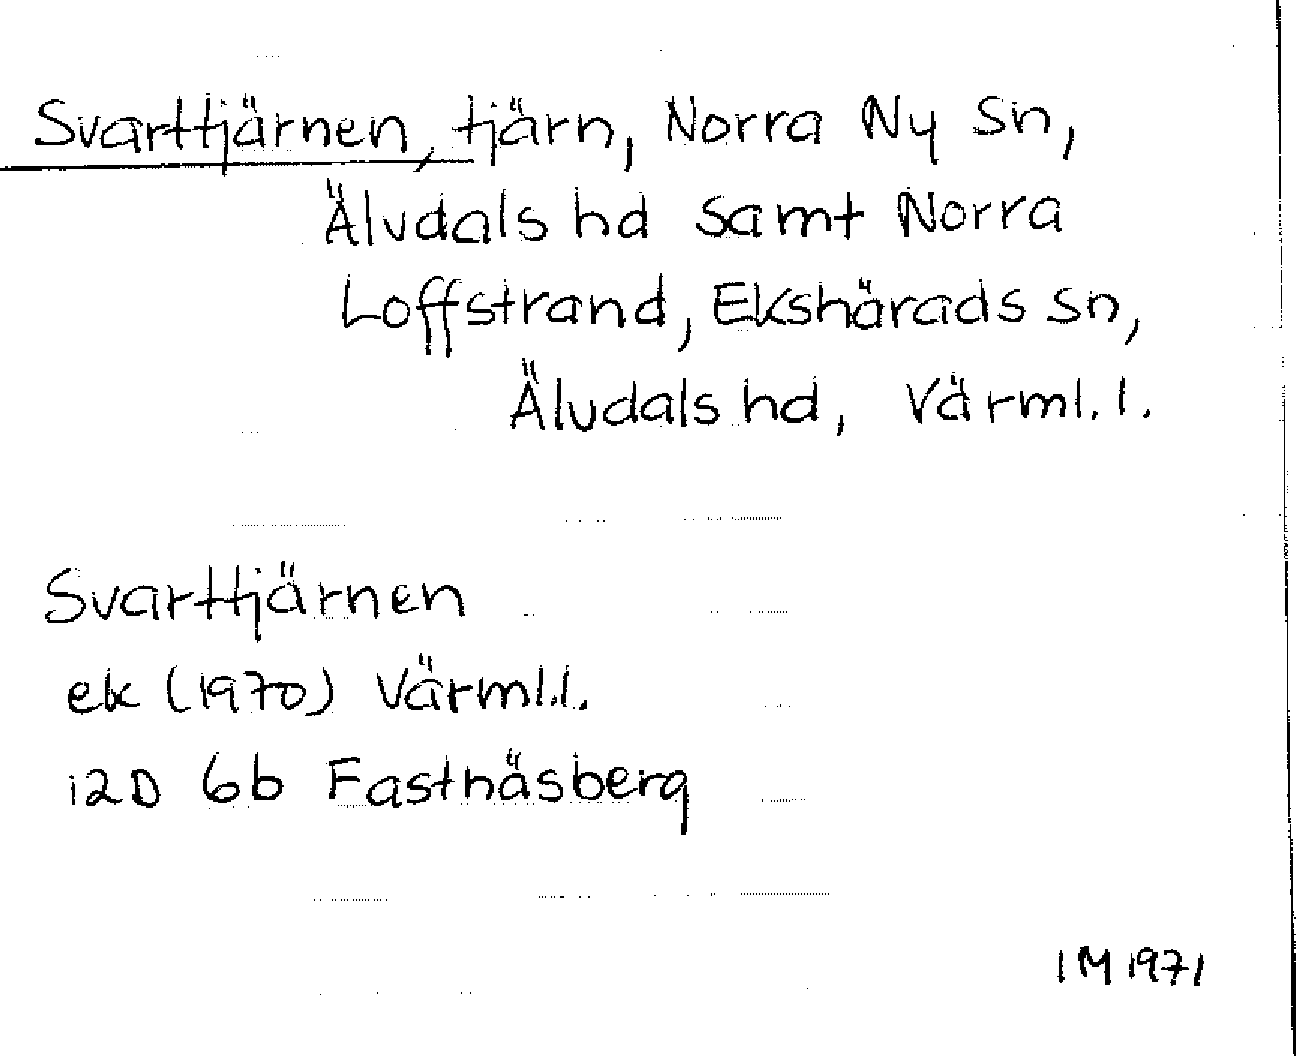 Svarttjärnen, tjärn, Norra Ny sn,
Älvdals hd samt Norra
Loffstrand, Ekshärads sn,
Älvdals hd, Värml. l.
Svarttjärnen
ek (1970) Värml.l.
12D 6b Fastnäsberg
IM 1971